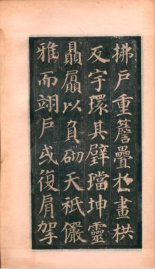 拂戶重簷疊於畫栱
反宇環其璧璫坤靈
贔屭以負砌天祇儼
雅而翊戶或復肩挐